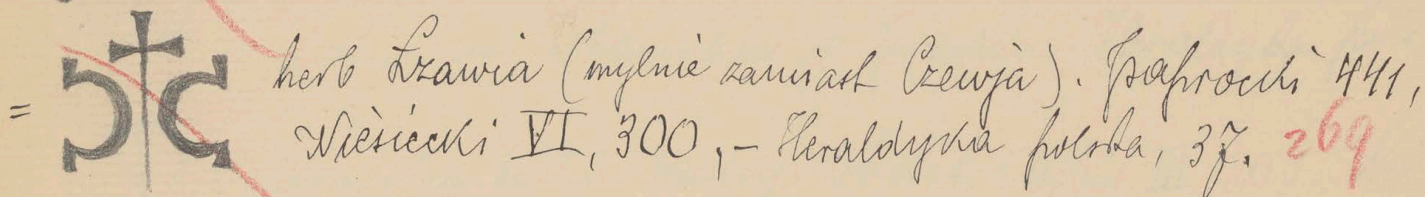 = herb Łzawia (mylnie zamiast Czewja). Paprocki 441,
Niesiecki VI, 300, – Heraldyka polska, 37. 269